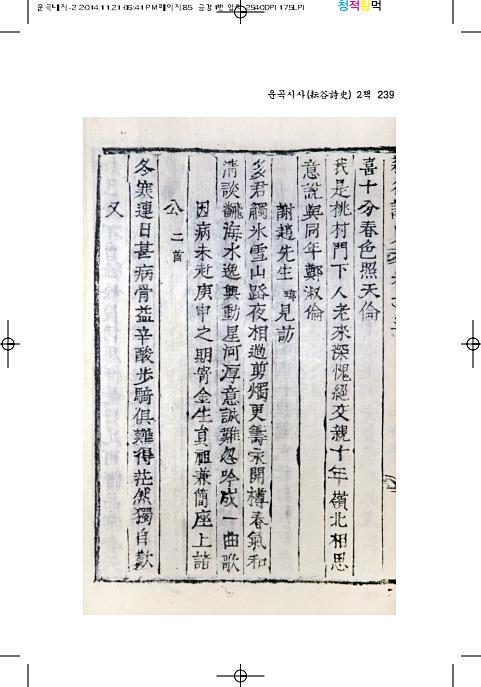 2014.11.21 05:41 PM 페이지85
2540DPI 175LPI
청적황먹
운곡시사(耘谷詩史) 2책 239
喜十分春色照天倫
我是桃村門下人老來深愧絕交親十年嶺北相思
意說與同年鄭淑倫
謝趙先生 見訪
多君觸氷雪山路夜相過剪燭更籌永開樽春氣和
清談飜海水逸興動星河厚意誠難忽吟成一曲歌
因病未赴庚申之期寄金生員祖兼簡座上諸
公 二首
冬寒連日甚病骨益辛酸步騎俱難得茫然獨自歎
又